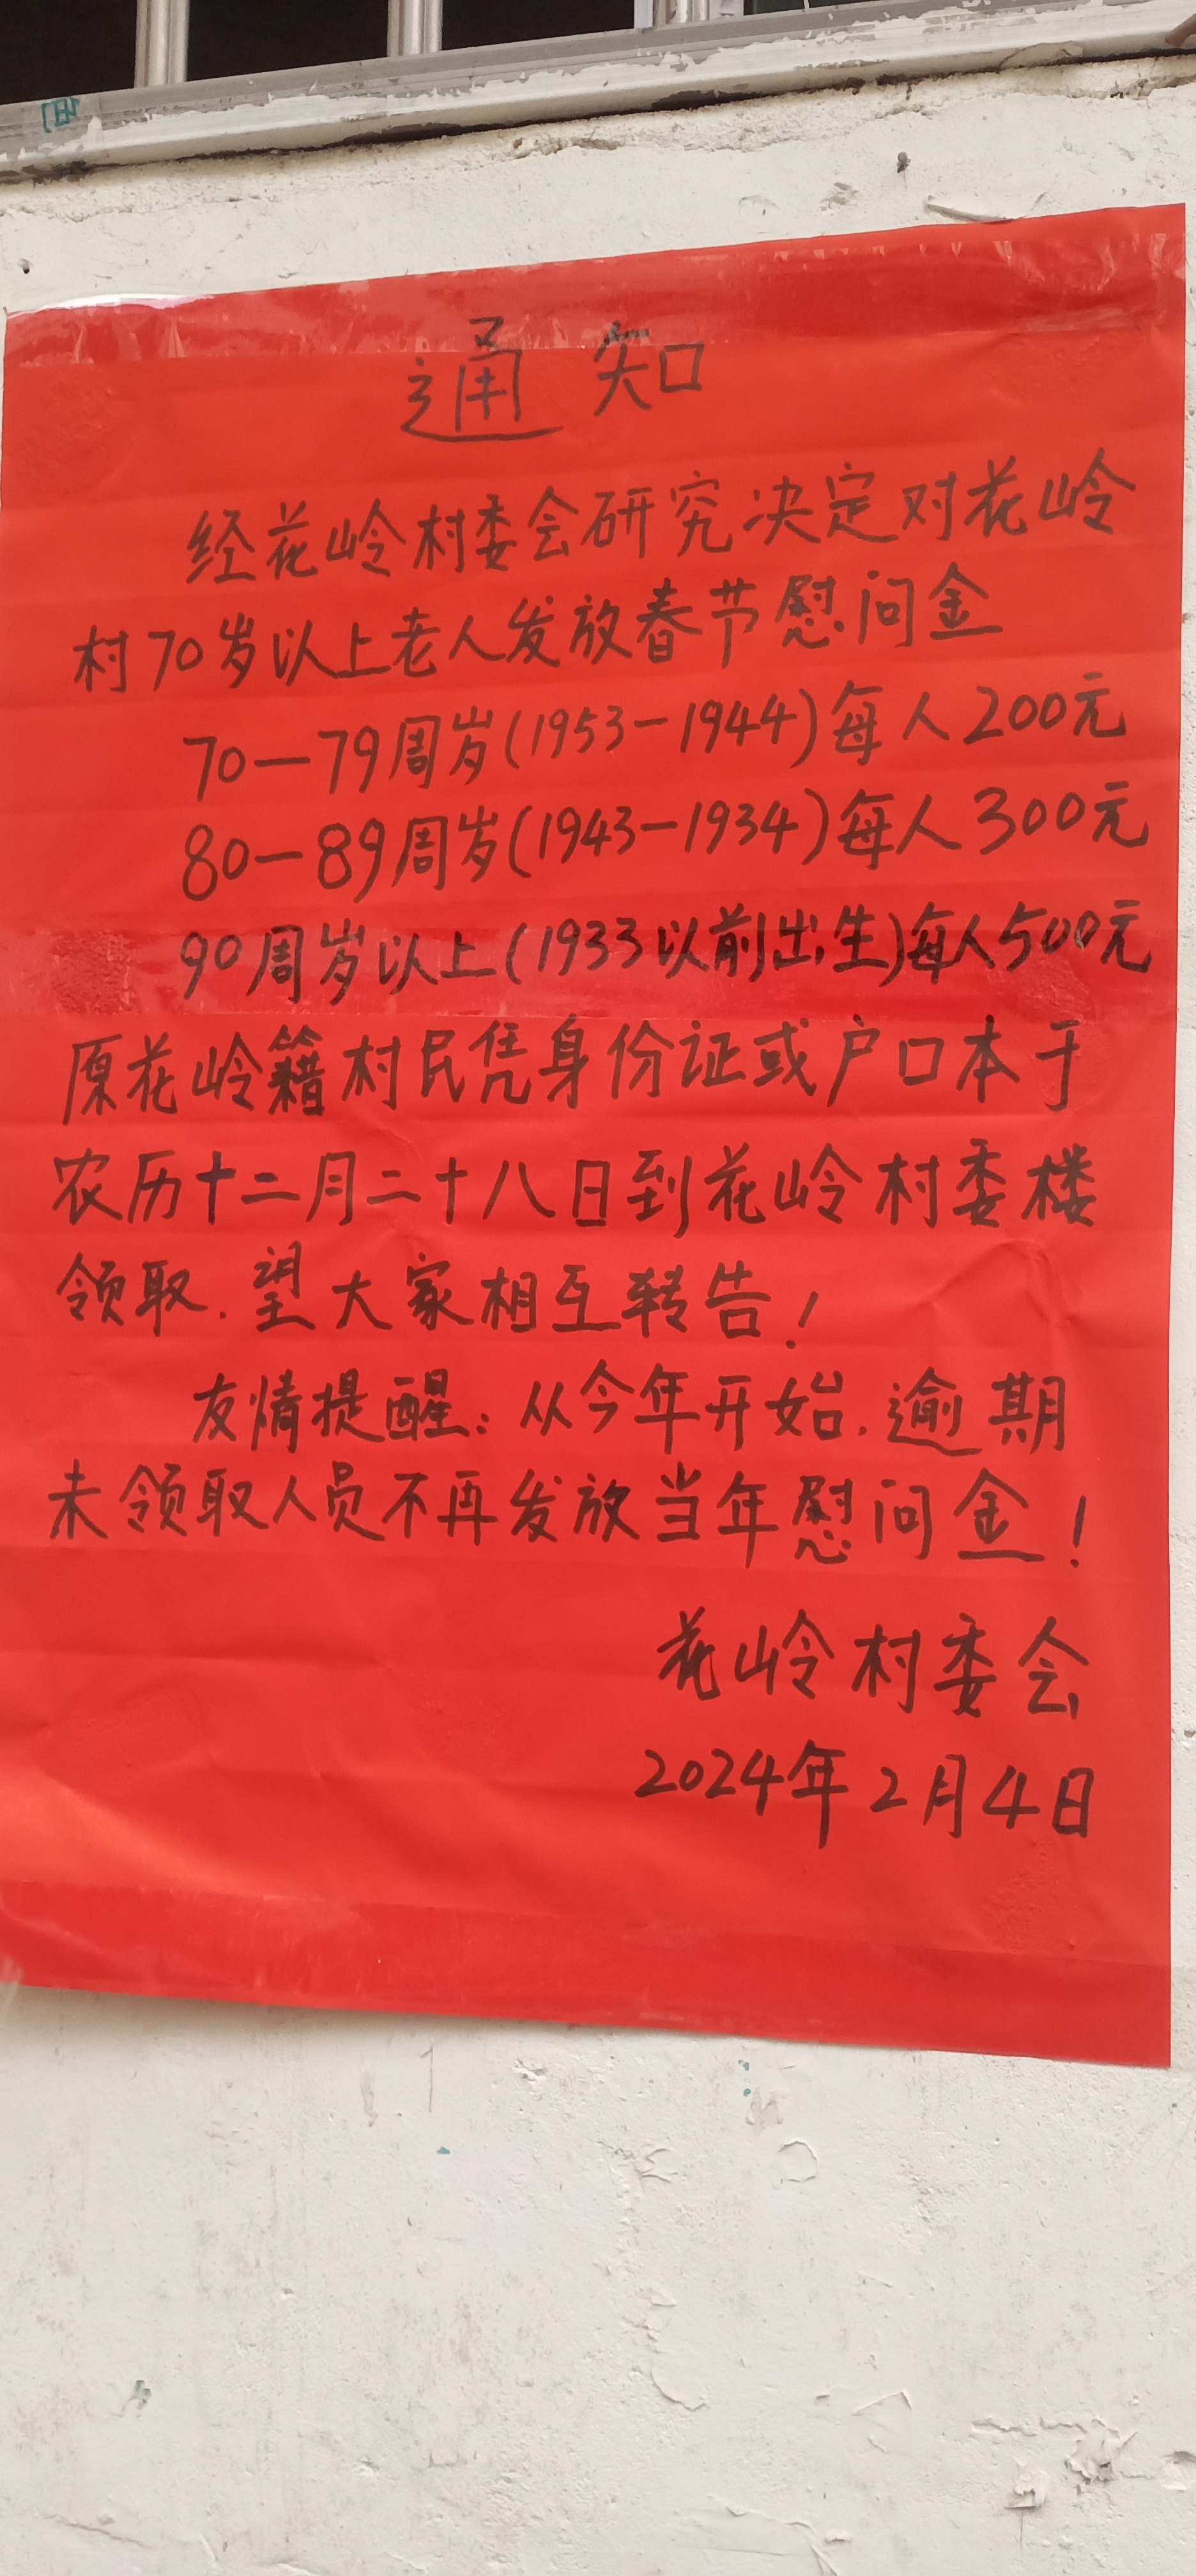 通知
经花岭村委会研究决定对花岭
村70岁以上老人发放春节慰问金
70—79周岁(1953-1944)每人200元
80—89周岁(1943-1934)每人300元
90周岁以上(1933以前出生)每人500元
原花岭籍村民凭身份证或户口本于
农历十二月二十八日到花岭村委楼
领取.望大家相互转告!
友情提醒:从今年开始.逾期
未领取人员不再发放当年慰问金!
花岭村委会
2024年2月4日